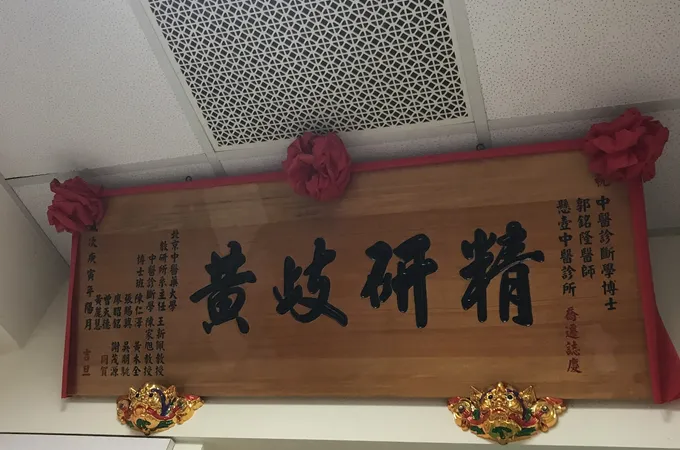 祝
中醫診斷學博士
郭銘隆醫師
懸壺中醫診所
喬遷誌慶
精研岐黃
北京中醫藥大學
教研所系主任 王新佩教授
中醫診斷學 陳家旭教授
博士班 陳仁澤 黃本全
廖昭銘 謝茂源
曾天德
黃麗慧 同賀
歲次庚寅年陽月
吉旦